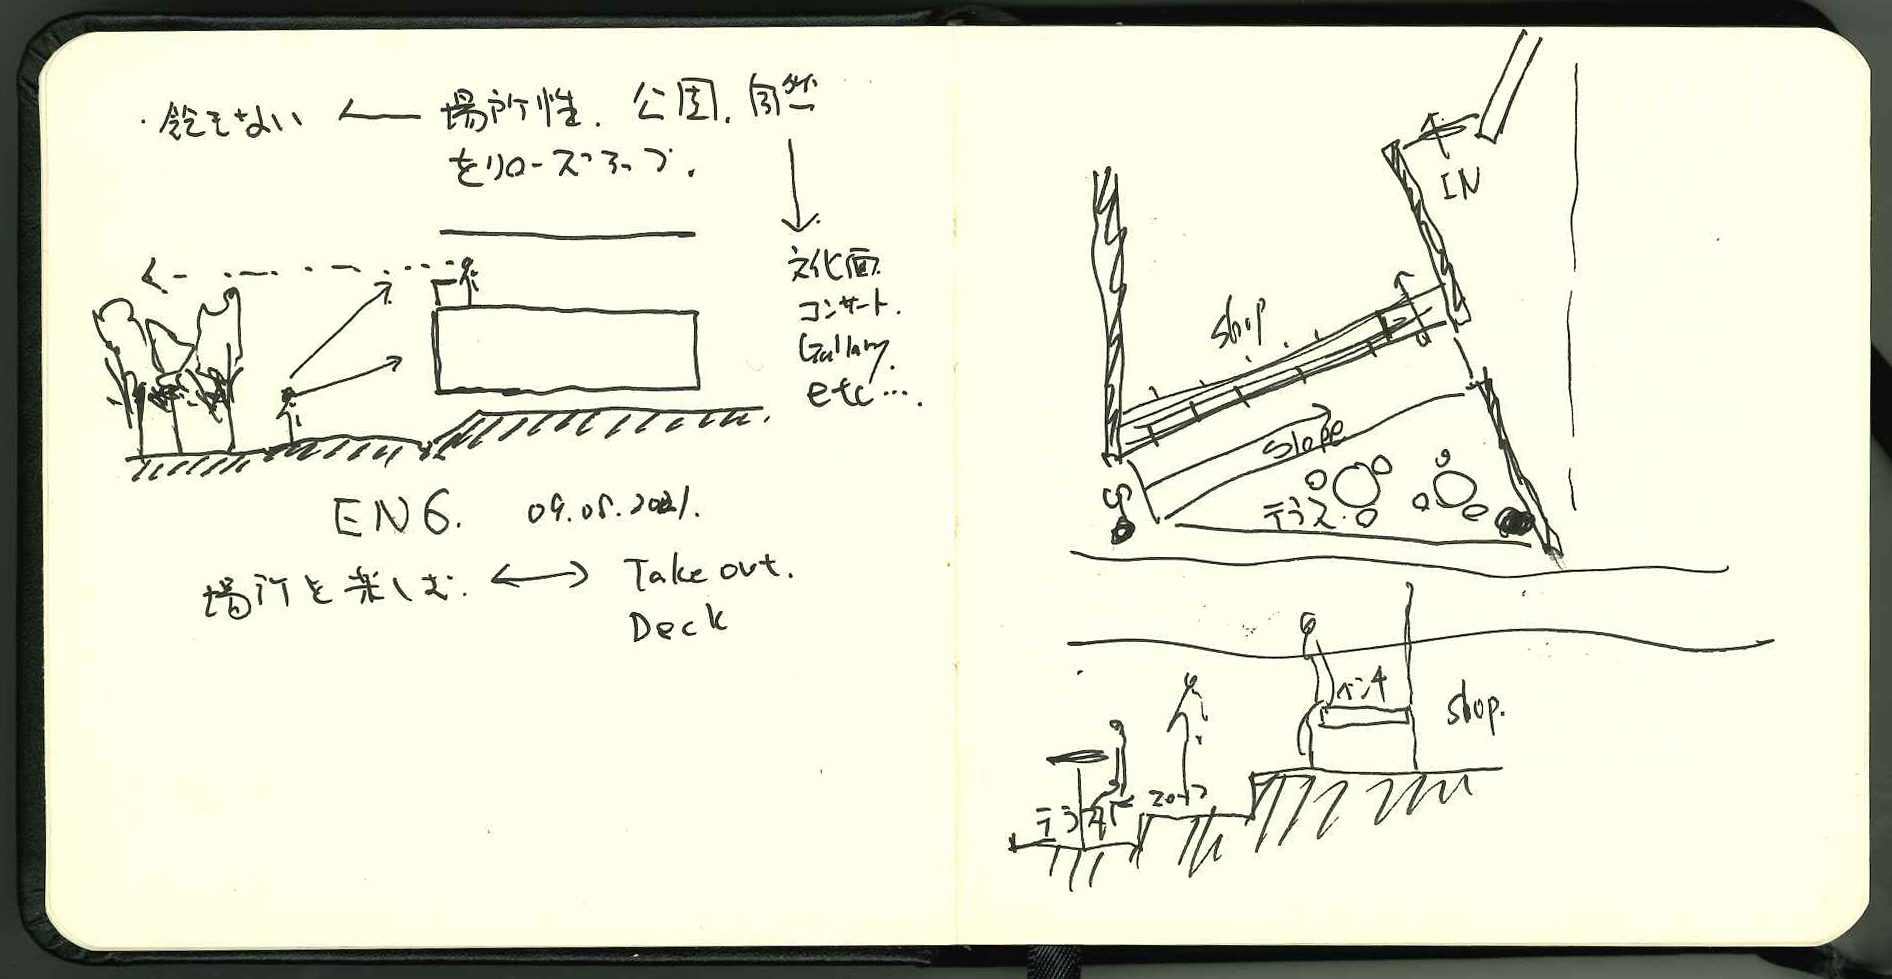 場所性. 公園. 自然
をクローズアップ.
文化面
コンサート.
Gallary.
etc….
EN6. 09.05.2021.
場所を楽しむ. Take out.
Deck
IN
shop
slope
テラス
ベンチ
shop.
テラス スロープ